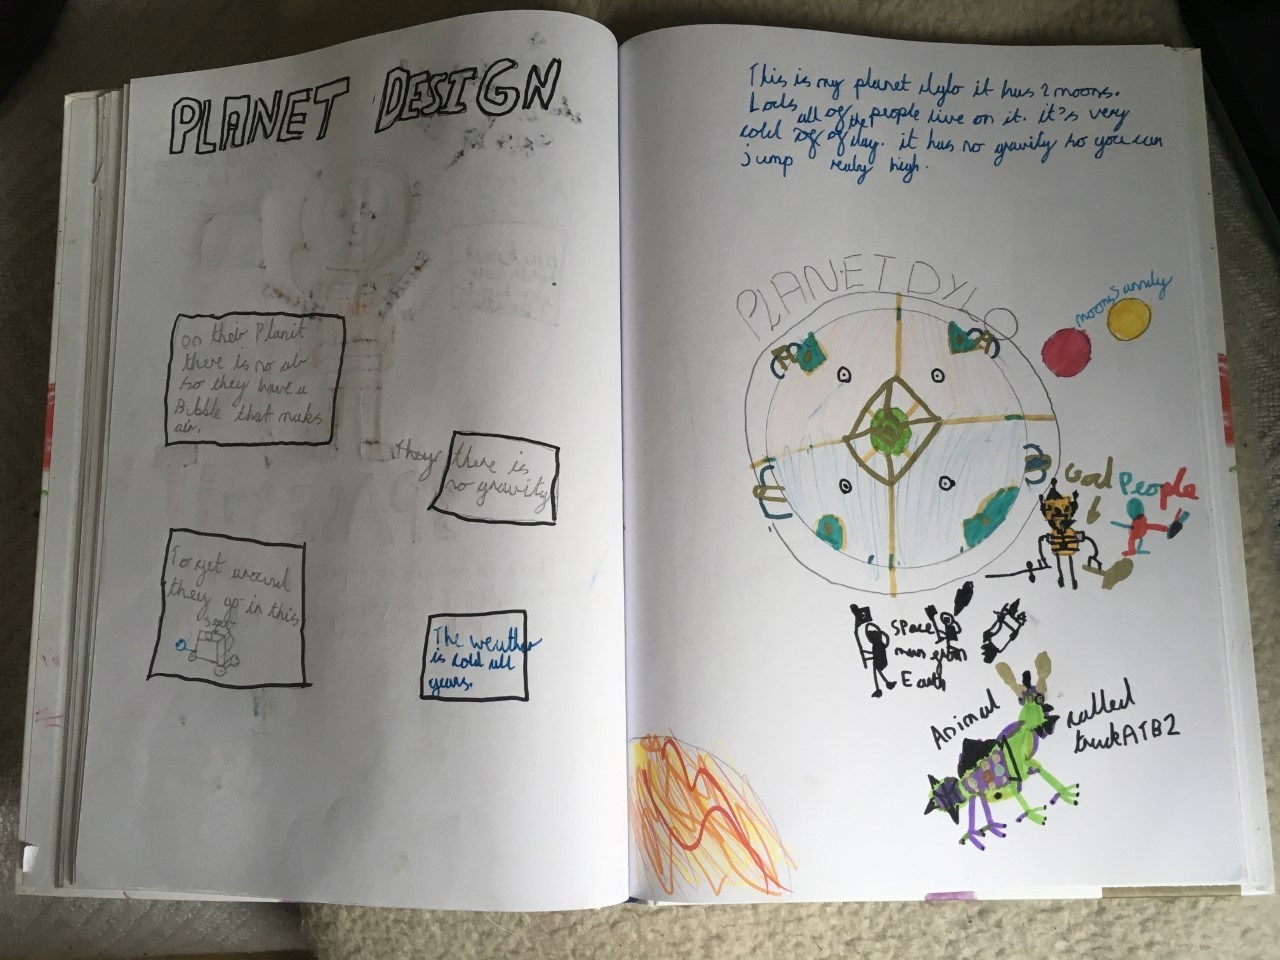 PLANET DESIGN
on their Planit
there is no air
so they have a
Bibble that makes
air.
they there is
no gravity
To get around
they go in this
seat
The weather
is cold all
years.
This is my planet dylo it has 2 moons.
Lods all of the people live on it. it's very
cold of day. it has no gravity so you can
jump realy high.
PLANET DYLO
moons Sanndy
God People
Space
man from
Earth
Animal called
truckATB2